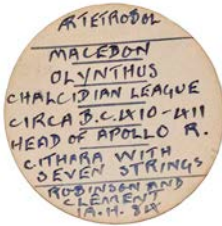 MACEDON
OLYNTHUS
CHALCIDIAN LEAGUE
CIRCA B.C. 410-411
HEAD OF APOLLO R.
CITHARA WITH
SEVEN STRINGS
ROBINSON AND
CLEMENT